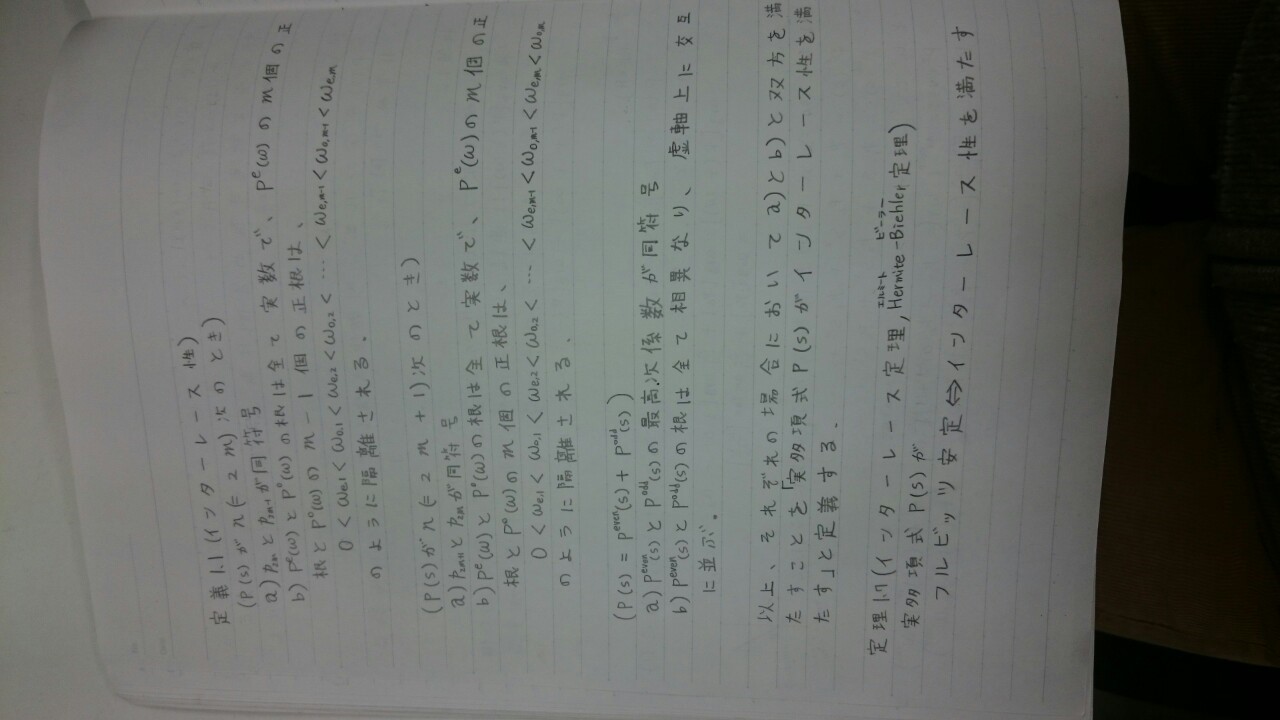 定義1.1(インターレース性)
(P(s)がn(=2m)次のとき)
a) p₂ₘとp₂ₘ₋₁が同符号
b) Pᵉ(ω)とP°(ω)の根は全て実数で、Pᵉ(ω)のm個の正
根とP°(ω)のm-1個の正根は、
0<ωe,1<ωo,1<ωe,2<ωo,2<…<ωe,m-1<ωo,m-1<ωe,m
のように隔離される.
(P(s)がn(=2m+1)次のとき)
a) p₂ₘ₊₁とp₂ₘが同符号
b) Pᵉ(ω)とP°(ω)の根は全て実数で、Pᵉ(ω)のm個の正
根とP°(ω)のm個の正根は、
0<ωe,1<ωo,1<ωe,2<ωo,2<…<ωe,m-1<ωo,m-1<ωe,m<ωo,m
のように隔離される.
(P(s)=P^even(s)+P^odd(s))
a) P^even(s)とP^odd(s)の最高次係数が同符号
b) P^even(s)とP^odd(s)の根は全て相異なり、虚軸上に交互
に並ぶ。
以上、それぞれの場合においてa)とb)と双方を満
たすことを「実多項式P(s)がインターレース性を満
たす」と定義する.
定理1.7(インターレース定理,Hermite-Biehler定理)
エルミート ビーラー
実多項式P(s)が
フルビッツ安定⇔インターレース性を満たす